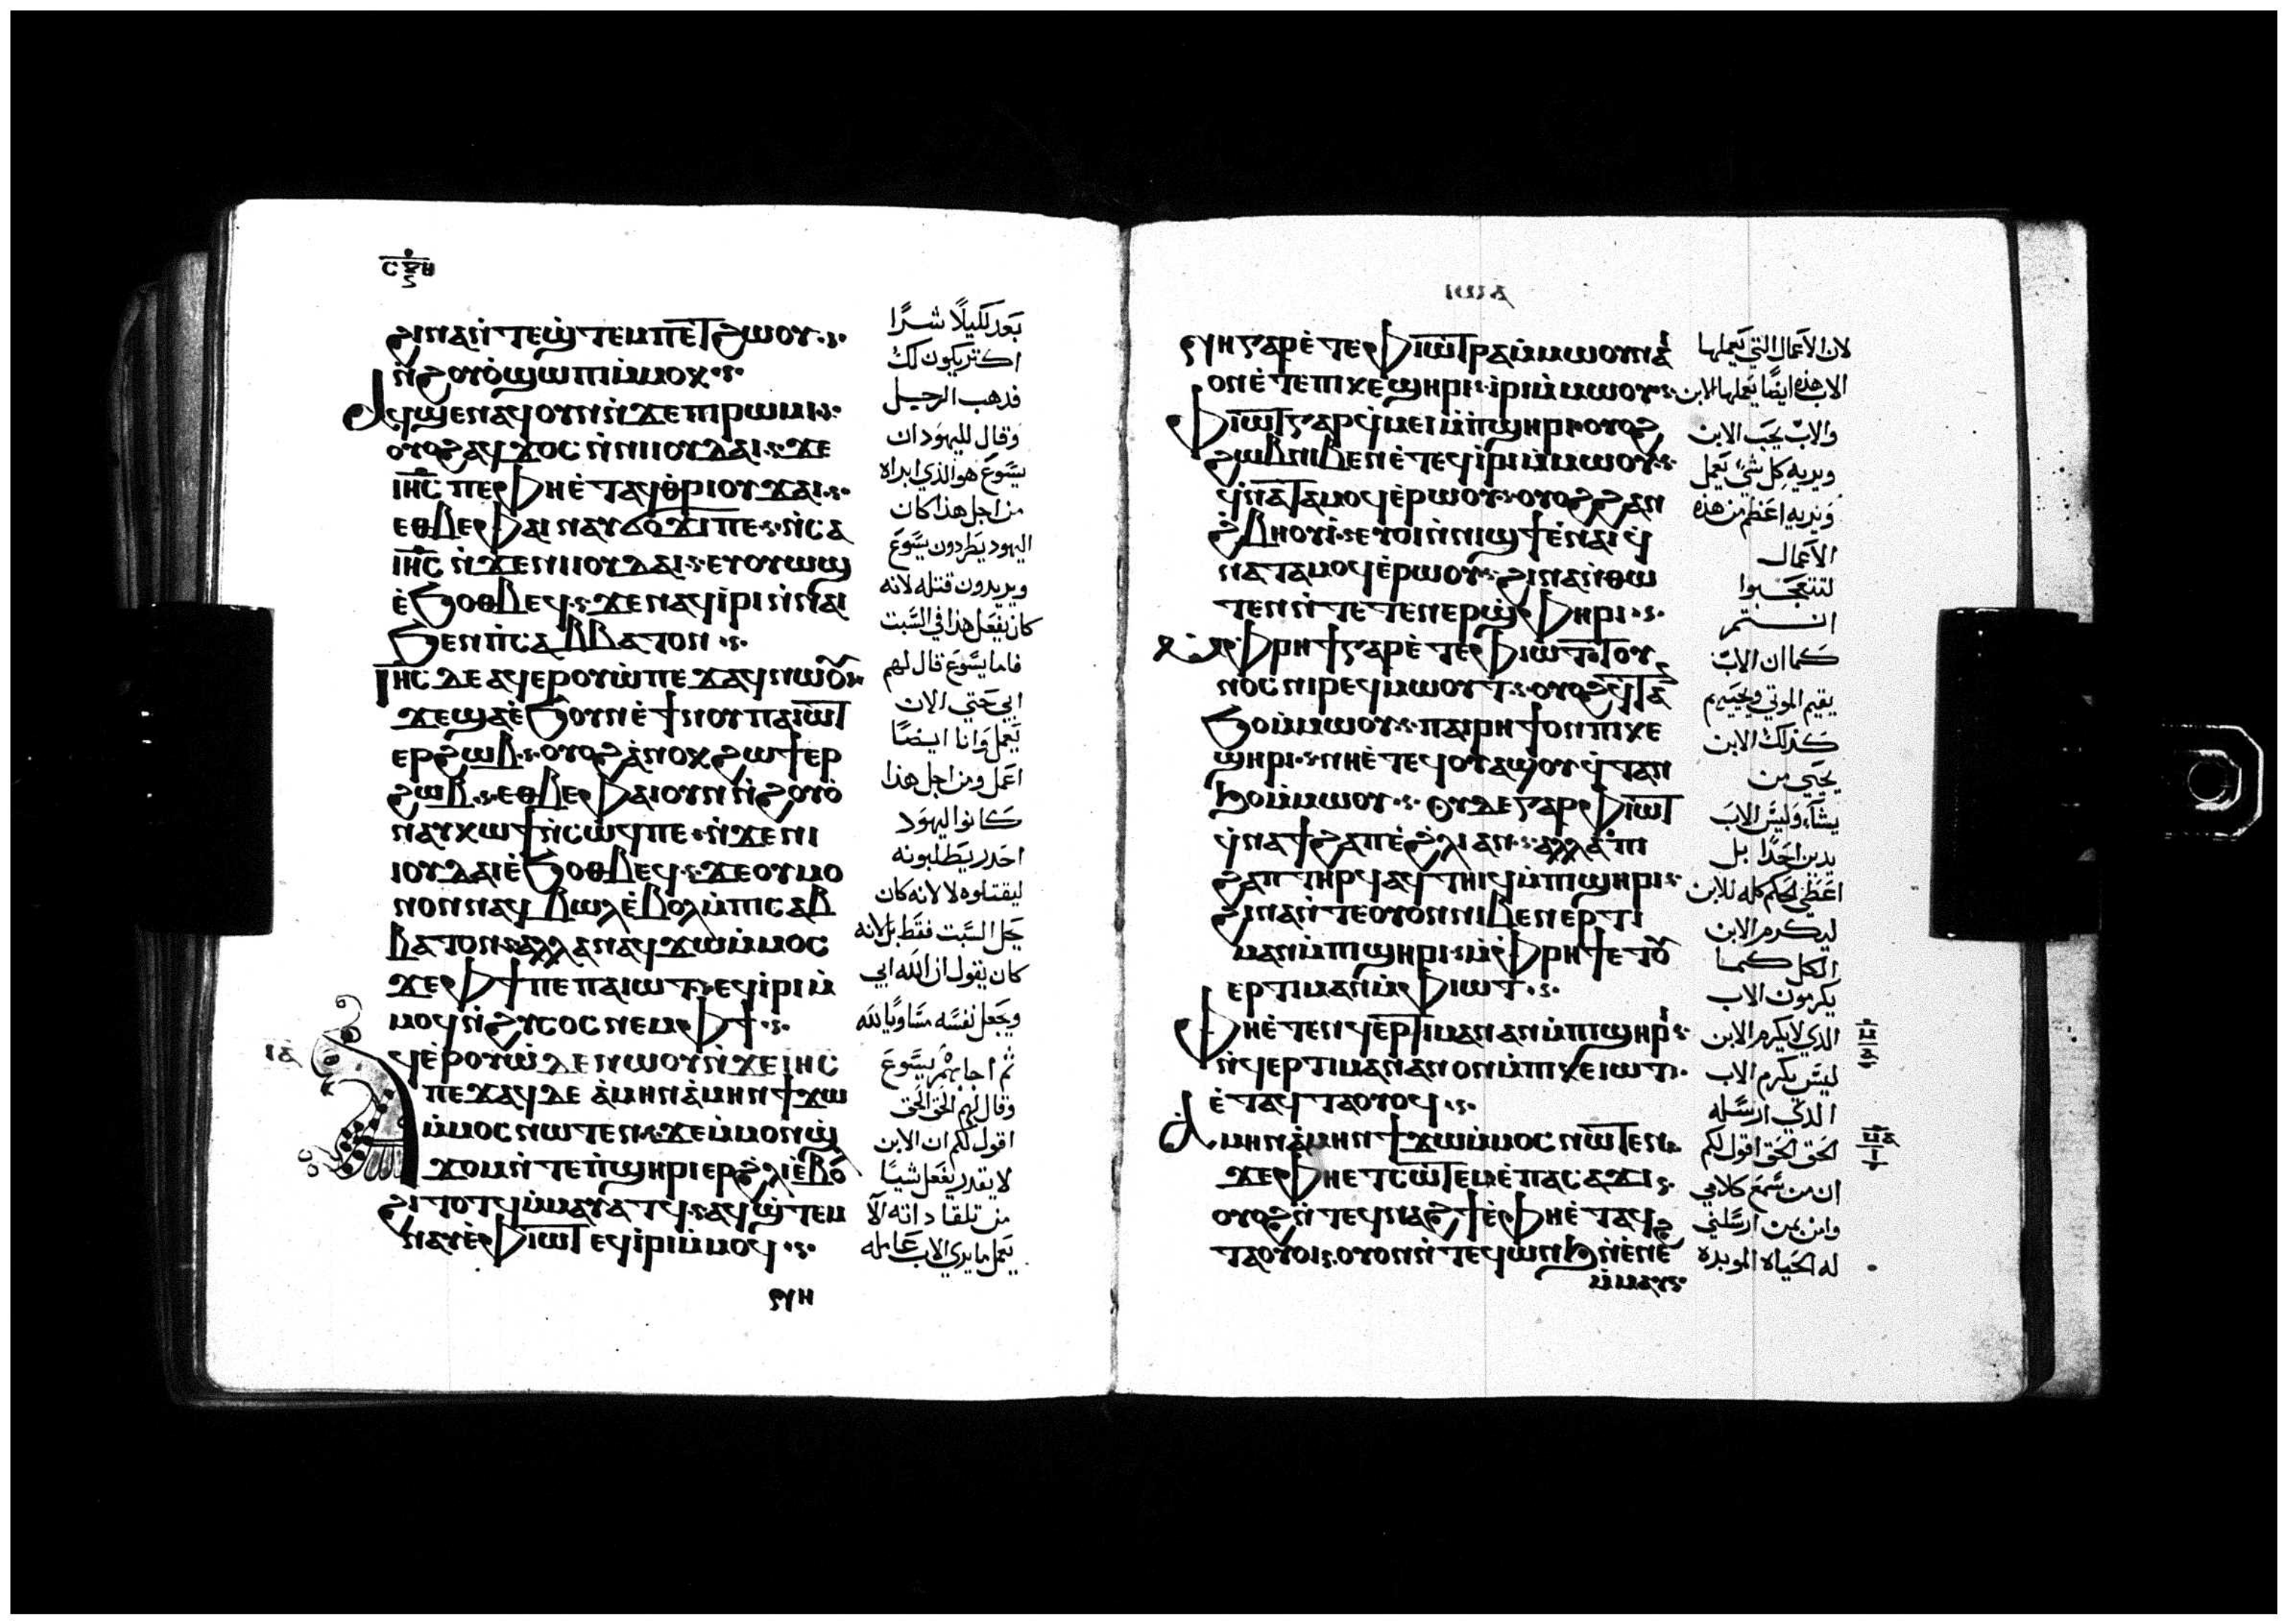 ϩⲓⲛⲁⲛ̀ⲧⲉϣ̀ⲧⲉⲙⲡⲉⲧϩⲱⲟⲩ
ⲛ̀ϩⲟⲩⲟ̀ϣⲱⲡⲓⲙ̀ⲙⲟⲕ
ⲁϥϣⲉⲛⲁϥⲟⲩⲛⲛ̀ϫⲉⲡⲓⲣⲱⲙⲓ
ⲟⲩⲟϩⲁϥϫⲟⲥⲛ̀ⲛⲓⲓⲟⲩⲇⲁⲓ ϫⲉ
ⲓⲏⲥ ⲡⲉⲫⲏⲉ̀ⲧⲁϥⲑ̀ⲣⲓⲟⲩϫⲁⲓ
ⲉⲑⲃⲉⲫⲁⲓⲛⲁⲩϭⲟ̀ϫⲓⲡⲉ ⲛ̀ⲥⲁ
ⲓⲏⲥ ⲛ̀ϫⲉⲛⲓⲓⲟⲩⲇⲁⲓ ⲉⲩⲟⲩⲱϣ
ⲉ̀ϧⲟⲑⲃⲉϥ ϫⲉⲛⲁϥⲓ̀ⲣⲓⲛ̀ⲛⲁⲓ
ϧⲉⲛⲡ̀ⲥⲁⲃⲃⲁⲧⲟⲛ
ⲓⲏⲥ ⲇⲉⲁϥⲉⲣⲟⲩⲱ̀ⲡⲉϫⲁϥⲛⲱⲟⲩ
ϫⲉϣⲁⲉ̀ϧⲟⲩⲛⲉ̀ϯⲛⲟⲩⲡⲁⲓⲱⲧ
ⲉⲣϩⲱⲃ ⲟⲩⲟϩⲁ̀ⲛⲟⲕϩⲱϯⲉⲣ
ϩⲱⲃ ⲉⲑⲃⲉⲫⲁⲓⲟⲩⲛⲛ̀ϩⲟⲩⲟ̀
ⲛⲁⲩⲕⲱϯⲛ̀ⲥⲱ̀ϥⲡⲉ ⲛ̀ϫⲉⲛⲓ
ⲓⲟⲩⲇⲁⲓⲉ̀ϧⲟⲑⲃⲉϥ ϫⲉⲟⲩⲙⲟ
ⲛⲟⲛⲛⲁϥⲃⲱⲗⲉ̀ⲃⲟⲗⲙ̀ⲡⲓⲥⲁⲃ
ⲃⲁⲧⲟⲛ ⲁⲗⲗⲁⲛⲁϥϫⲱⲙ̀ⲙⲟⲥ
ϫⲉⲫϯⲡⲉⲡⲁⲓⲱⲧ ⲉϥⲓ̀ⲣⲓⲙ̀
ⲙⲟϥⲛ̀ϩⲩⲥⲟⲥⲛⲉⲙⲫϯ
ⲓⲁ
ⲁϥⲉ̀ⲣⲟⲩⲱ̀ⲇⲉⲛⲱⲟⲩⲛ̀ϫⲉⲓⲏⲥ
ⲡⲉϫⲁϥⲇⲉ ⲁ̀ⲙⲏⲛⲁ̀ⲙⲏⲛϯϫⲱ
ⲙ̀ⲙⲟⲥⲛⲱⲧⲉⲛ ϫⲉⲙ̀ⲙⲟⲛϣ̀
ϫⲟⲙⲛ̀ⲧⲉⲡ̀ϣⲏⲣⲓⲉⲣϩ̀ⲗⲓⲉ̀ⲃⲟ
ϩⲓⲧⲟⲧϥⲙ̀ⲙⲁⲩⲁⲧϥ ⲁϥϣ̀ⲧⲉⲙ
ⲛⲁⲩⲉ̀ⲫⲓⲱⲧⲉϥⲓ̀ⲣⲓⲙ̀ⲙⲟϥ
بعد لكيلا شرًا
اكتر يكون لك
فدهب الرجل
وقال لليهود ان
يسوع هو الذي ابراه
من اجل هذا كان
اليهود يطردون يسوع
ويريدون قتله لانه
كان يفعل هذا في السبت
فاما يسوع قال لهم
ابي حتي الان
يعمل وانا ايضًا
اعمل ومن اجل هذا
كانوا اليهود
احدر يطلبونه
ليقتلوه لا لانه كان
يحل السبت فقط بل لانه
كان يقول ان الله ابي
ويجعل نفسه مساويًا لله
ثم اجابهم يسوع
وقال لهم الحق الحق
اقول لكم ان الابن
لا يقدر يفعل شيًا
من تلقا داته الا
يعمل ما يري الاب عامله
ⲛⲏⲅⲁⲣⲉ̀ⲧⲉⲫⲓⲱⲧⲣⲁⲙ̀ⲙⲱⲟⲩⲛⲁ
ⲟⲛⲉ̀ⲧⲉⲡⲓⲕⲉϣⲏⲣⲓ ⲓⲣⲓⲙ̀ⲙⲱⲟⲩ
ⲫⲓⲱⲧⲅⲁⲣϥ̀ⲙⲉⲓⲙ̀ⲡ̀ϣⲏⲣⲓ ⲟⲩⲟϩ
ϩⲱⲃⲛⲓⲃⲉⲛⲉ̀ⲧⲉϥⲓ̀ⲣⲓⲙ̀ⲙⲱⲟⲩ
ϥ̀ⲛⲁⲧⲁⲙⲟϥⲉ̀ⲣⲱⲟⲩ ⲟⲩⲟϩϩⲁⲛ
ϩ̀ⲃⲏⲟⲩⲓ̀ ⲉⲩⲟⲓⲛ̀ⲛⲓϣϯⲉ̀ⲛⲁⲓϥ̀
ⲛⲁⲧⲁⲙⲟϥⲉ̀ⲣⲱⲟⲩ ϩⲓⲛⲁⲛ̀ⲑⲱ
ⲧⲉⲛⲛ̀ⲧⲉⲧⲉⲛⲉⲣϣ̀ⲫⲏⲣⲓ
ⲙ̀ⲫⲣⲏϯⲅⲁⲣⲉ̀ⲧⲉⲫⲓⲱⲧⲧⲟⲩ
ⲛⲟⲥⲛⲓⲣⲉϥⲙⲱⲟⲩⲧ ⲟⲩⲟϩϥ̀ⲧⲁ
ϧⲟⲙ̀ⲙⲱⲟⲩ ⲡⲁⲓⲣⲏϯⲟⲛⲡⲓⲕⲉ
ϣⲏⲣⲓ ⲛⲏⲉ̀ⲧⲉϥⲟⲩⲁϣⲟⲩ ϥ̀ⲧⲁⲛ
ϧⲟⲙ̀ⲙⲱⲟⲩ ⲟⲩⲇⲉⲅⲁⲣⲫⲓⲱⲧ
ϥ̀ⲛⲁϯϩⲁⲡⲉ̀ϩ̀ⲗⲓⲁⲛ ⲁⲗⲗⲁⲡⲓ
ϩⲁⲡⲧⲏⲣϥⲁϥⲧⲏⲓϥⲙ̀ⲡⲓϣⲏⲣⲓ
ϩⲓⲛⲁⲛ̀ⲧⲉⲟⲩⲟⲛⲛⲓⲃⲉⲛⲉⲣⲧⲓ
ⲙⲁⲛⲙ̀ⲡⲓϣⲏⲣⲓ ⲙ̀ⲫⲣⲏϯⲉⲧⲟⲩ
ⲉⲣⲧⲓⲙⲁⲛⲙ̀ⲫⲓⲱⲧ
ⲫⲏⲉ̀ⲧⲉⲛϥⲉ̀ⲣⲧⲓⲙⲁⲛⲁⲛⲙ̀ⲡⲓϣⲏⲣⲓ
ⲛ̀ϥⲉⲣⲧⲓⲙⲁⲛⲁⲛⲟⲛⲙ̀ⲡⲓⲕⲉⲓⲱⲧ
ⲉ̀ⲧⲁϥⲧⲁⲟⲩⲟϥ
ⲁ̀ⲙⲏⲛⲁ̀ⲙⲏⲛϯϫⲱⲙ̀ⲙⲟⲥⲛⲱⲧⲉⲛ
ϫⲉⲫⲏⲉⲧⲥⲱ̀ⲧⲉⲙⲉ̀ⲡⲁⲥⲁϫⲓ
ⲟⲩⲟϩⲛ̀ⲧⲉϥⲛⲁϩϯⲉ̀ⲫⲏⲉ̀ⲧⲁϥ
ⲧⲁⲟⲩⲟⲓ ⲟⲩⲟⲛⲛ̀ⲧⲉϥⲱⲛϧⲛ̀ⲉ̀ⲛⲉ̀
ⲙ̀ⲙⲁⲩ
لان الاعمال التي يعملها
الاب هذه ايضًا يعملها الابن
والاب يحب الابن
ويريه كل شي يعمل
ويريه اعظم من هذه
الاعمال
لتتعجبوا
انتم
كما ان الاب
يقيم الموتي ويحييهم
كذلك الابن
يحيي من
يشاء وليس الاب
يدين احدًا بل
اعطي الحكم كله للابن
ليكرم الابن
الكل كما
يكرمون الاب
الذي لا يكرم الابن
ليس يكرم الاب
الذي ارسله
الحق الحق اقول لكم
ان من سمع كلامي
وامن بمن ارسلني
له الحياه الموبده